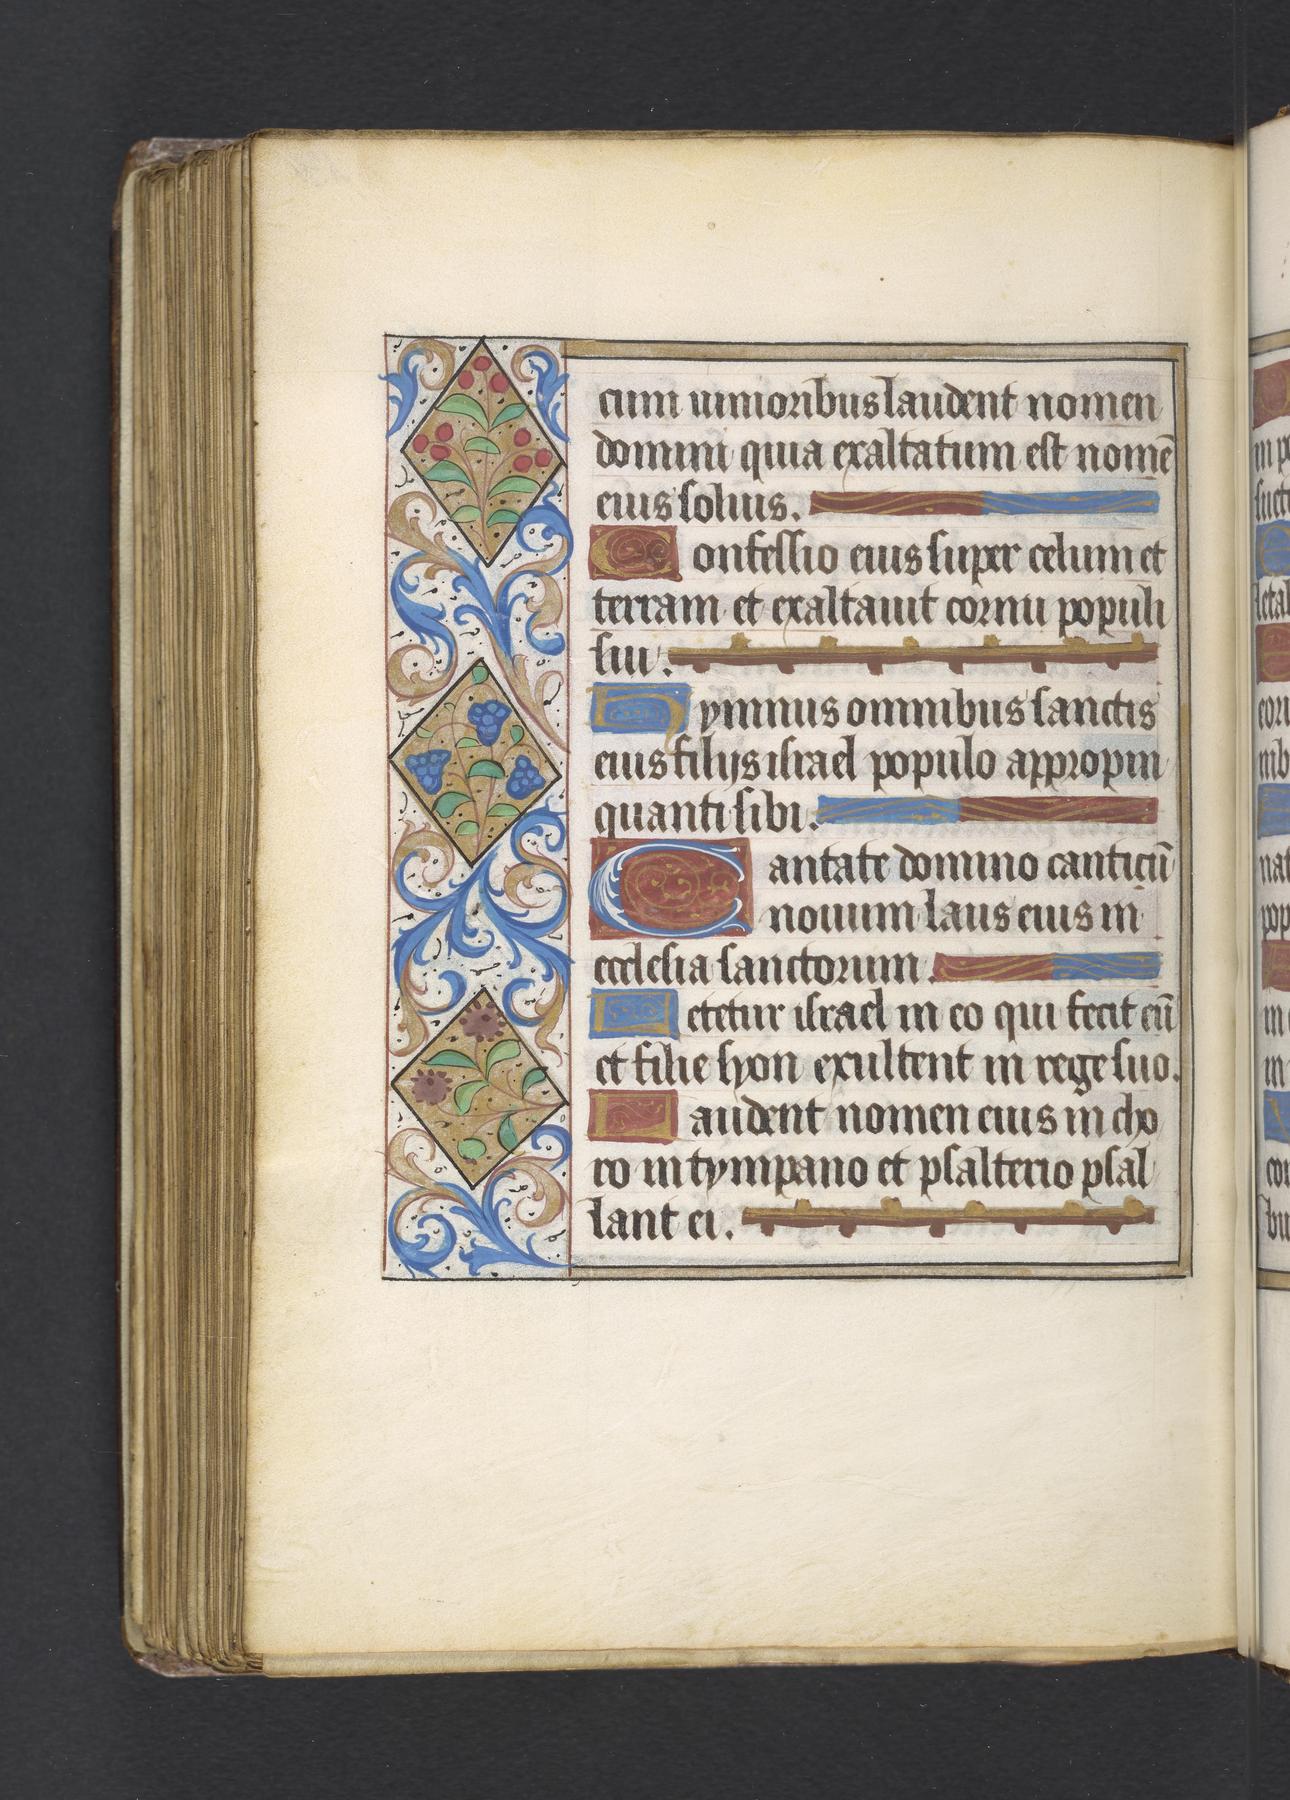 cum iunioribus laudent nomen
domini quia exaltatum est nomē
eius solius.
Confessio eius super celum et
terram et exaltauit cornu populi
sui.
Hymnus omnibus sanctis
eius filijs israel populo appropin
quanti sibi.
Cantate domino canticū
nouum laus eius in
ecclesia sanctorum.
Letetur israel in eo qui fecit eū
et filie syon exultent in rege suo.
Laudent nomen eius in cho
ro in tympano et psalterio psal
lant ei.